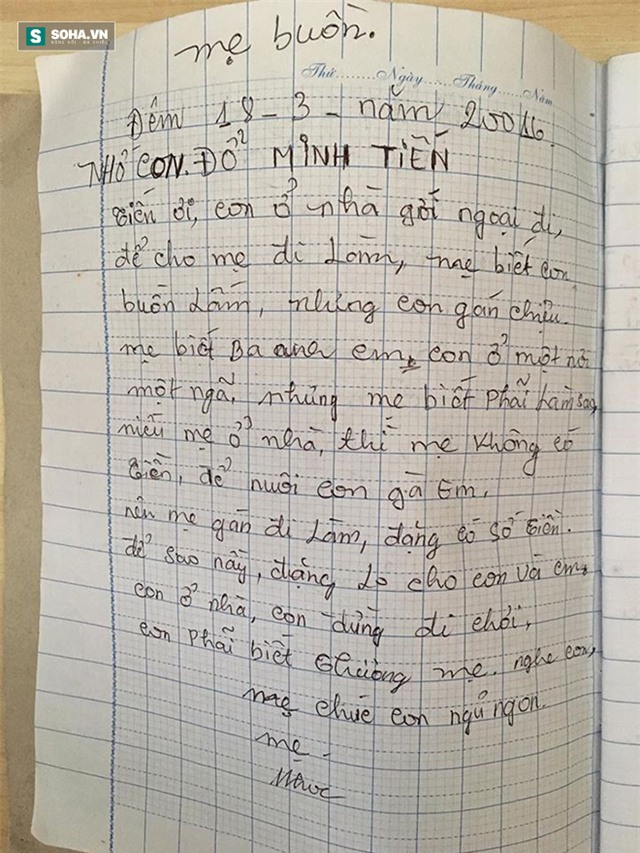 SOHA.VN
mẹ buồn.
Thứ........Ngày......Tháng......Năm
Đêm 18-3-năm 20016.
NHỚ CON. ĐỖ MINH TIẾN
tiến ơi, con ở nhà gới ngoại đi,
để cho mẹ đi Làm, mẹ biết con
buồn Lắm, nhưng con gán chịu.
mẹ biết Ba anh em, con ở một nơi
một ngã, nhưng mẹ biết phải Làm sao,
niếu mẹ ở nhà, thì mẹ không có
tiền, để nuôi con gà Em.
nên mẹ gán đi Làm, đặng có số tiền.
để sao nầy, đặng Lo cho con và em,
con ở nhà, con đừng đi chơi,
con phải biết thương mẹ. nghe con,
mẹ chúc con ngủ ngon.
mẹ.